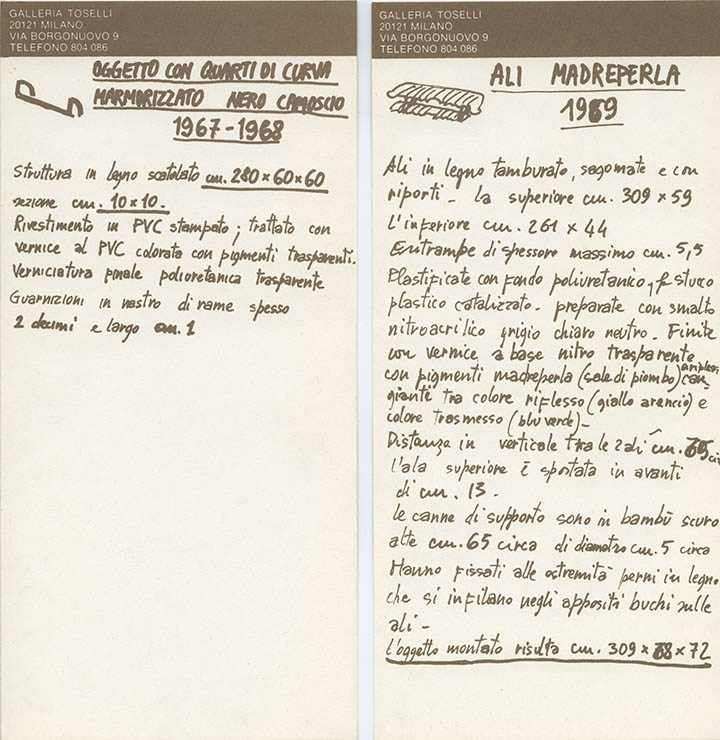 GALLERIA TOSELLI
20121 MILANO
VIA BORGONUOVO 9
TELEFONO 804 086
OGGETTO CON QUARTI DI CURVA
MARMORIZZATO NERO CAMOSCIO
1967-1968
Struttura in legno scatolato cm. 280×60×60
sezione cm. 10×10.
Rivestimento in PVC stampato; trattato con
vernice al PVC colorata con pigmenti trasparenti.
Verniciatura finale poliuretanica trasparente
Guarnizioni in nastro di rame spesso
2 decimi e largo cm. 1
GALLERIA TOSELLI
20121 MILANO
VIA BORGONUOVO 9
TELEFONO 804 086
ALI MADREPERLA
1969
Ali in legno tamburato, sagomate e con
riporti - la superiore cm. 309×59
L'inferiore cm. 261 × 44
Entrambe di spessore massimo cm. 5,5
Plastificate con fondo poliuretanico, stucco
plastico catalizzato. preparate con smalto
nitroacrilico grigio chiaro neutro. Finite
con vernice a base nitro trasparente
con pigmenti madreperla (sale di piombo) can-
gianti tra colore riflesso (giallo arancio) e
colore trasmesso (blu verde)-
Distanza in verticale tra le 2 ali cm. 65 cir
l'ala superiore è spostata in avanti
di cm. 13.
le canne di supporto sono in bambù scuro
alte cm. 65 circa di diametro cm. 5 circa
Hanno fissati alle estremità perni in legno
che si infilano negli appositi buchi sulle
ali -
L'oggetto montato risulta cm. 309 × × 72